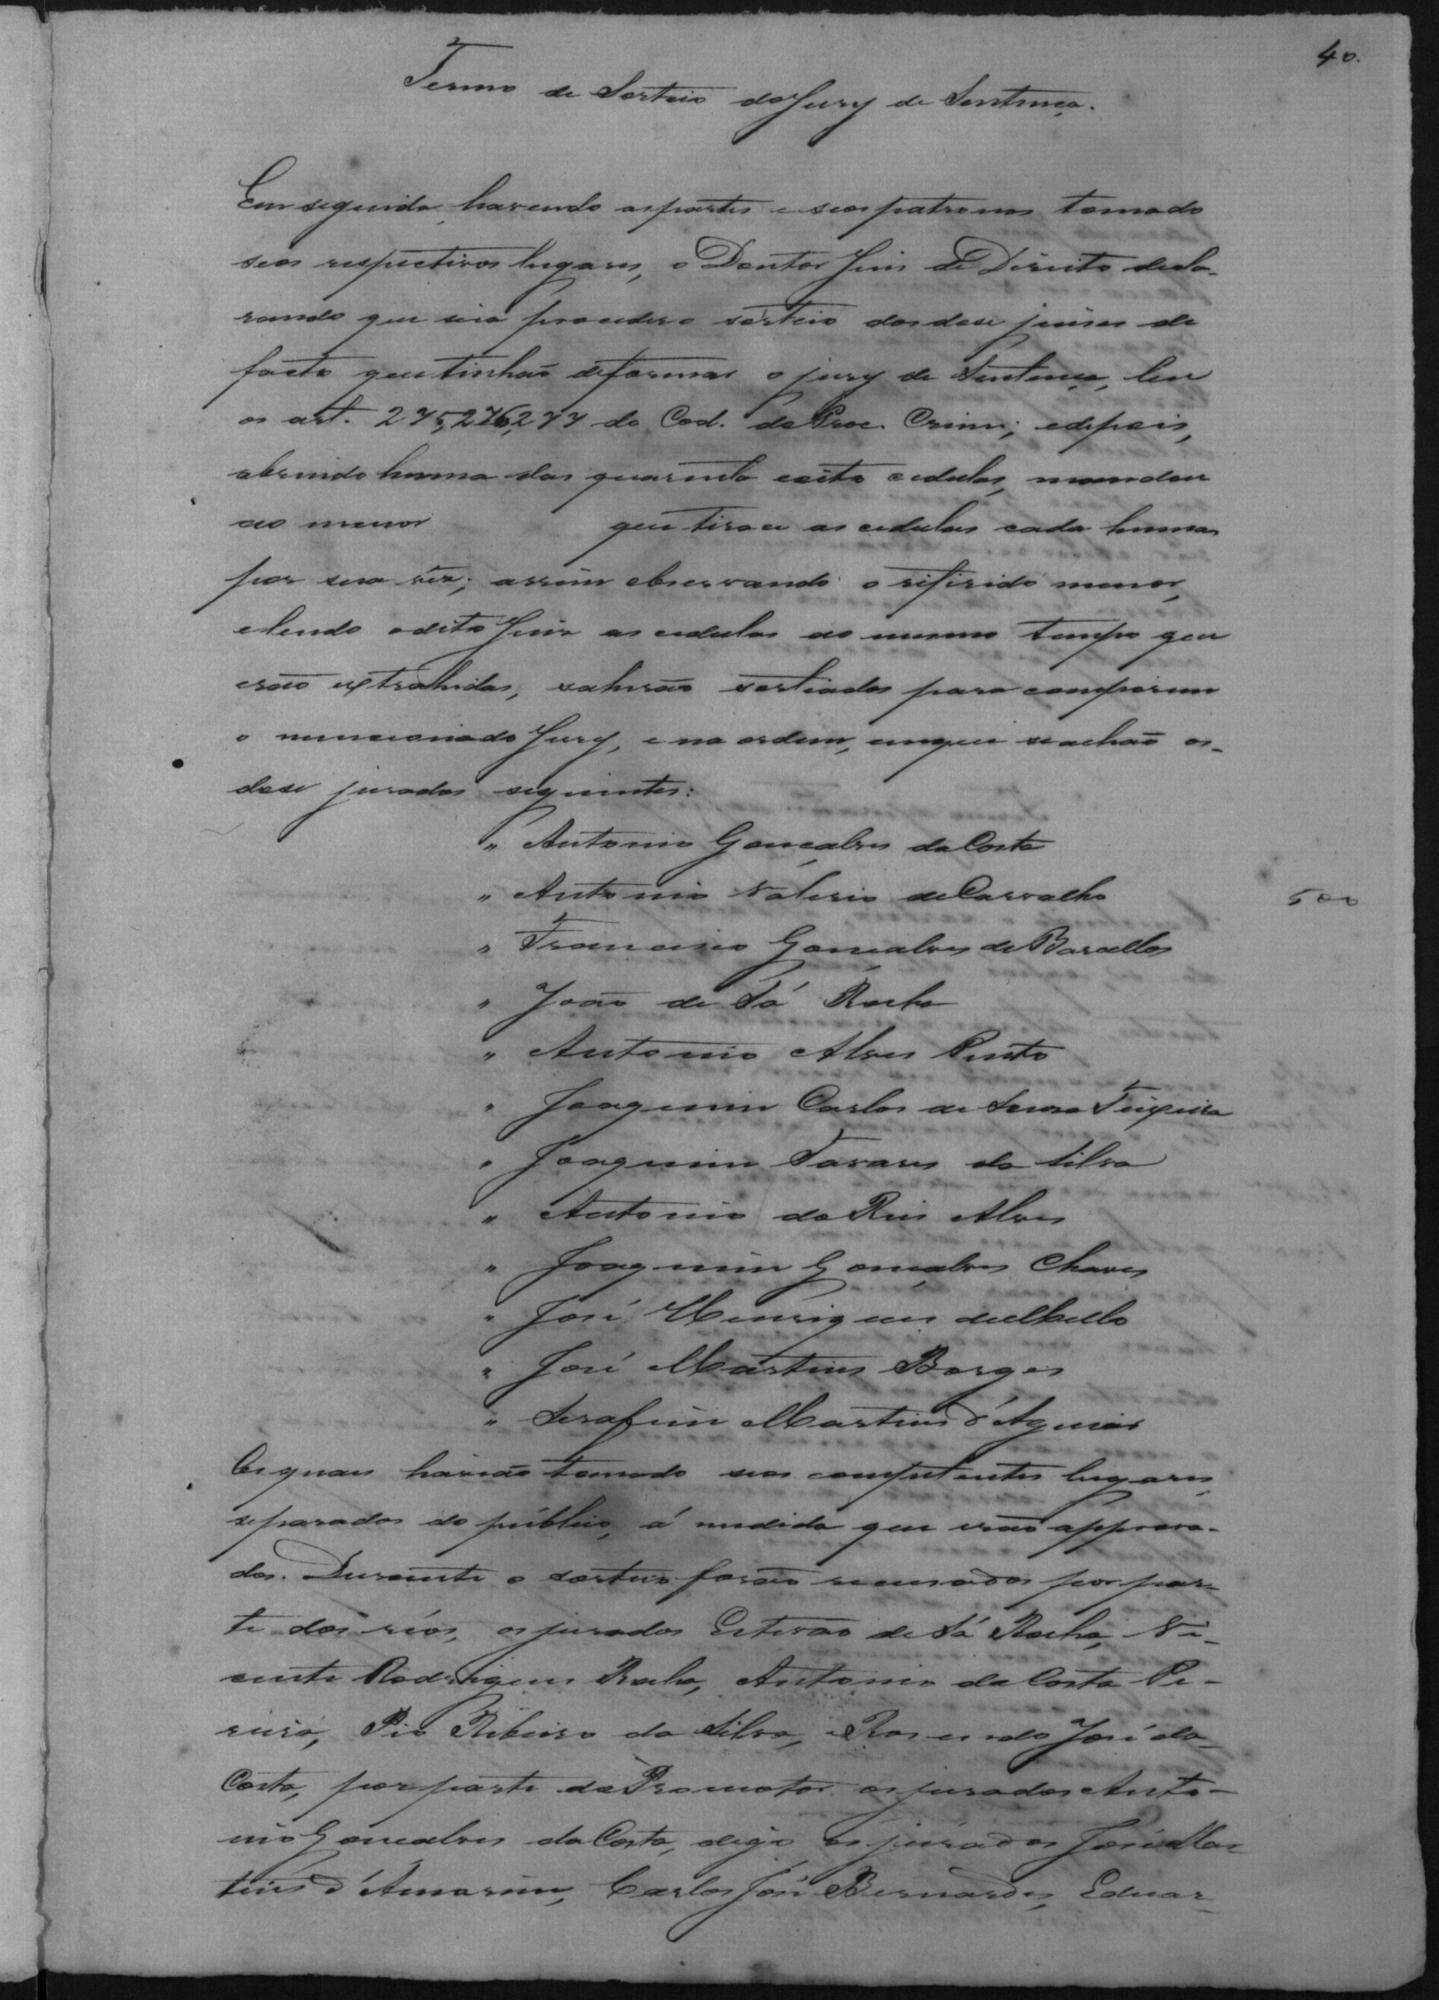 40.
Termo de Sorteio do Jury de Sentença.
Em seguida, havendo as partes e seos patronos tomado
seos respectivos lugares, o Doutor Juiz de Direito decla-
rando que hia proceder o sorteio dos dose juises de
facto que tinhão de formar o jury de Sentença, leu
os art. 275, 276, 277 do Cod. do Proc. Crim; e depois,
abrindo huma das quarenta e oito cedulas, mandou
ao menor que tirou as cedulas cada huma
por sua vez; assim observando o referido menor,
e lendo o dito Juiz as cedulas ao mesmo tempo que
erão extrahidas, sahirão sorteados para comporem
o mencionado Jury, e na ordem, em que se achão os
dose jurados seguintes:
" Antonio Gonçalves da Costa
" Antonio Valerio de Carvalho
500
" Francisco Gonçalves de Barcellos
" João de Sá Rocha
" Antonio Alves Pinto
" Joaquim Carlos de Sousa Teixeira
" Joaquim Tavares da Silva
" Antonio do Reis Alves
" Joaquim Gonçalves Chaves
" José Henriques de Mello
" José Martins Borges
" Serafim Martins d'Aguiar
Os quaes havião tomado seos competentes lugares
separados do público, á medida que erão approva-
dos. Durante o sorteio forão recusados por par-
te dos réos, os jurados Estevão de Sá Rocha, Vi-
cente Rodrigues Rocha, Antonio da Costa Pe-
reira, Pio Ribeiro da Silva, e Rosendo José da
Costa, por parte do Promotor os jurados Anto-
nio Gonçalves da Costa, digo, os jurados José Mar
tins d'Amorim, Carlos José Bernardes, Eduar-